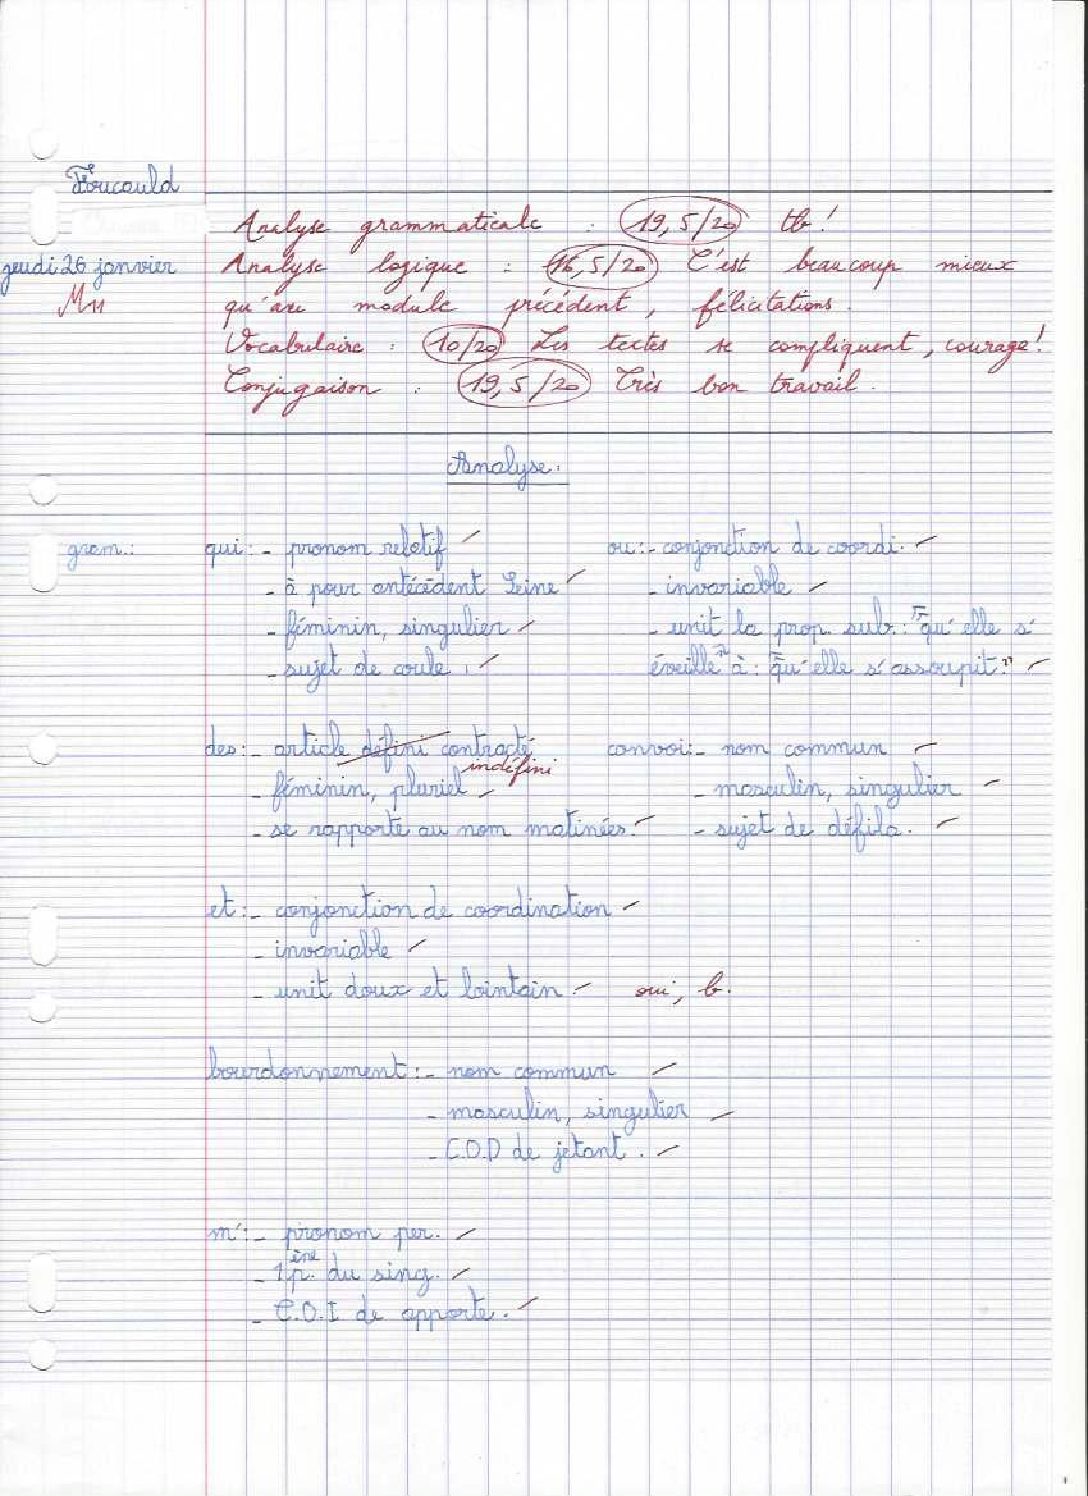 Foucauld
Analyse grammaticale : 19,5/20 tb!
jeudi 26 janvier
Analyse logique : 16,5/20 C'est beaucoup mieux
M11
qu'au module précédent, félicitations.
Vocabulaire : 10/20 Les textes se compliquent, courage!
Conjugaison : 19,5/20 Très bon travail.
Analyse.
gram.: qui: - pronom relatif
- à pour antécédent Seine
- féminin, singulier
- sujet de coule.
ou: - conjonction de coordi.
- invariable
- unit la prop. sub.: "qu'elle s'
éveille" à: "qu'elle s'assoupit."
des: - article défini contracté
indéfini
- féminin, pluriel
- se rapporte au nom matinées.
convoi: - nom commun
- masculin, singulier
- sujet de défila.
et: - conjonction de coordination
- invariable
- unit doux et lointain. oui, b.
bourdonnement: - nom commun
- masculin, singulier
- C.O.D de jetant.
m': - pronom per.
- 1ère p. du sing.
- C.O.I de apporte.